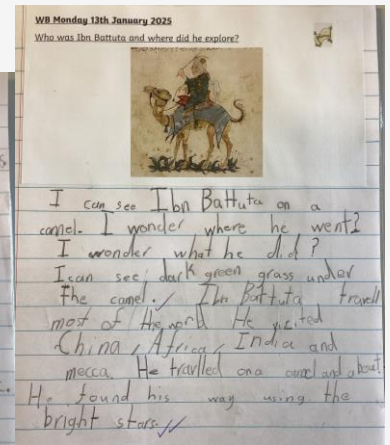 WB Monday 13th January 2025
Who was Ibn Battuta and where did he explore?
I can see Ibn Battuta on a
camel. I wonder where he went?
I wonder what he did?
I can see dark green grass under
the camel. Ibn Battuta travell
most of the world He visited
China, Africa, India and
mecca. He travlled on a camel and a boat!
He found his way using the
bright stars.